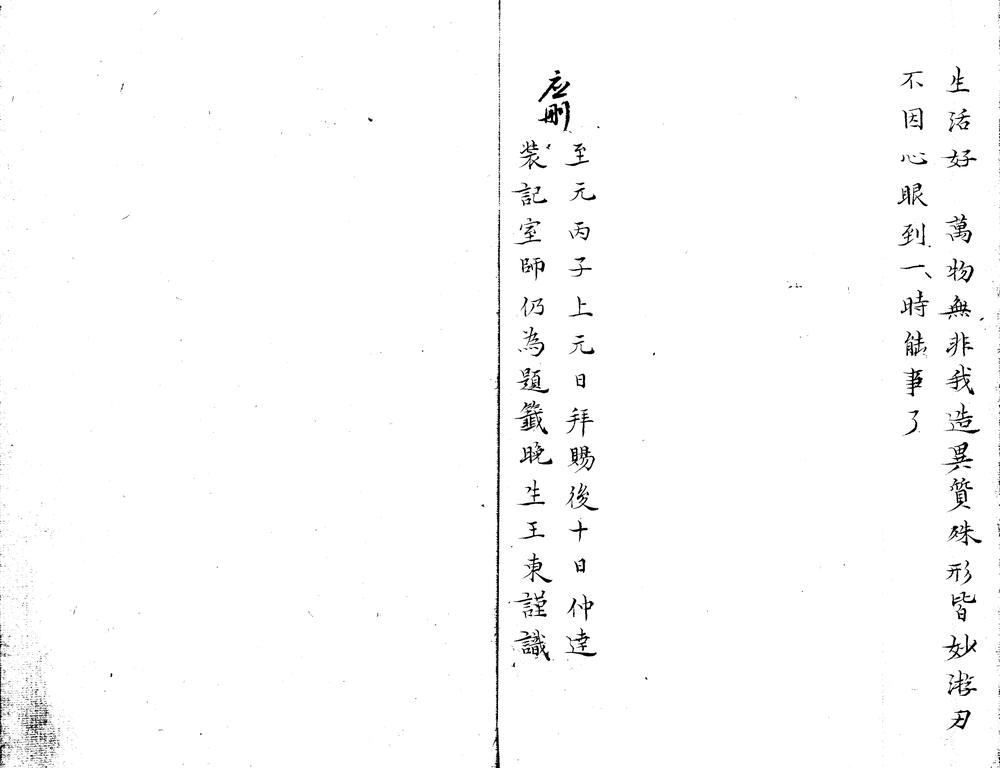 生活好　萬物無非我造異質殊形皆妙游刃
不因心眼到一時能事了
至元丙子上元日拜賜後十日仲達
裝記室師仍為題籤晚生王東謹識
应刪